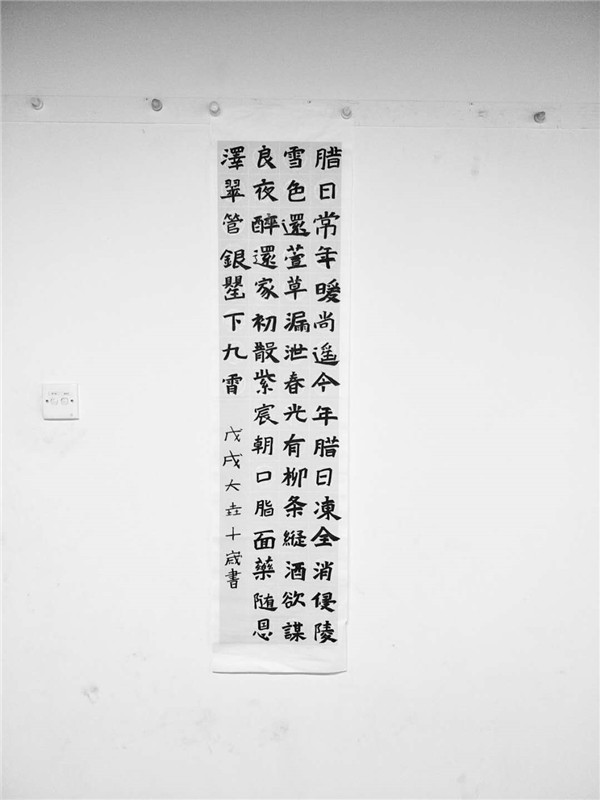 腊日常年暖尚遥今年腊日凍全消侵陵
雪色還萱草漏泄春光有柳条縦酒欲謀
良夜醉還家初散紫宸朝口脂面藥随恩
澤翠管銀罌下九霄
戊戌大垚十歲書